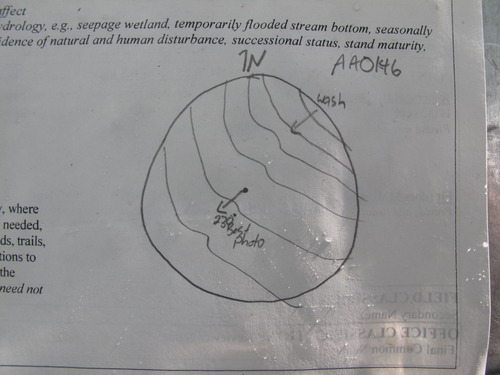 ffect
ydrology, e.g., seepage wetland, temporarily flooded stream bottom, seasonally
idence of natural and human disturbance, successional status, stand maturity,
↑N
AA0146
wash
photo
, where
needed,
ds, trails,
tions to
the
need not
FIELD CLASSI
Secondary Namez
OFFICE CLASSI
Final Common N